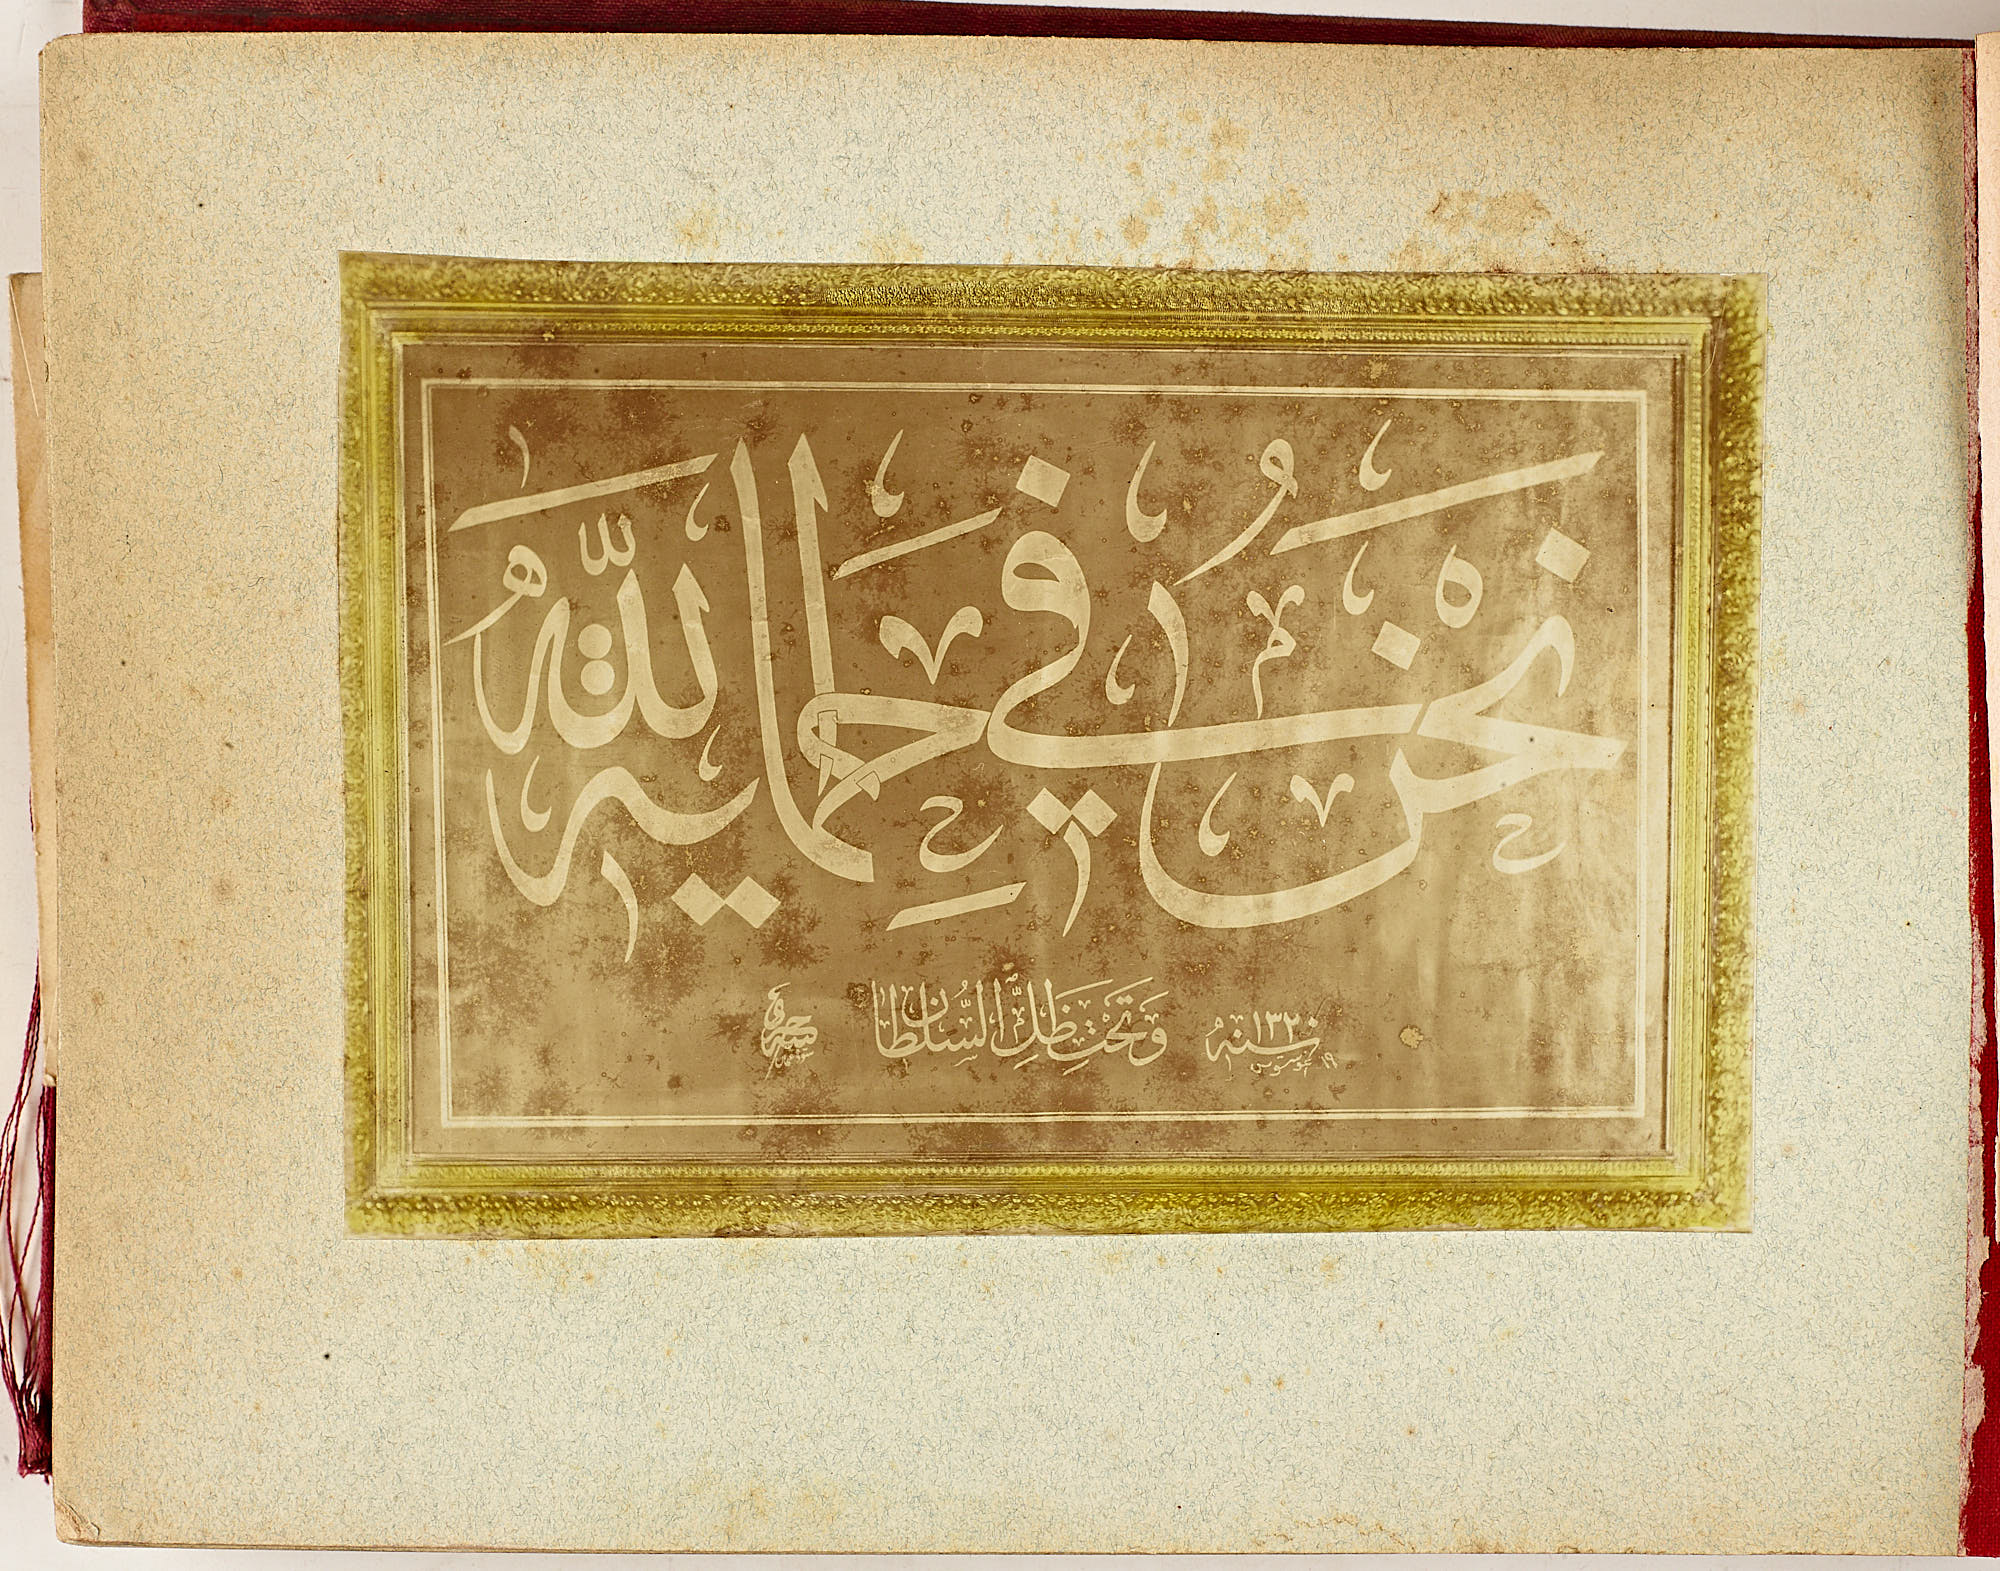 نَحْنُ فِي حِمَايَةِ اللهِ
وَتَحْتَ ظِلِّ السُّلْطَانِ
سنه ١٣٢٠
١٩